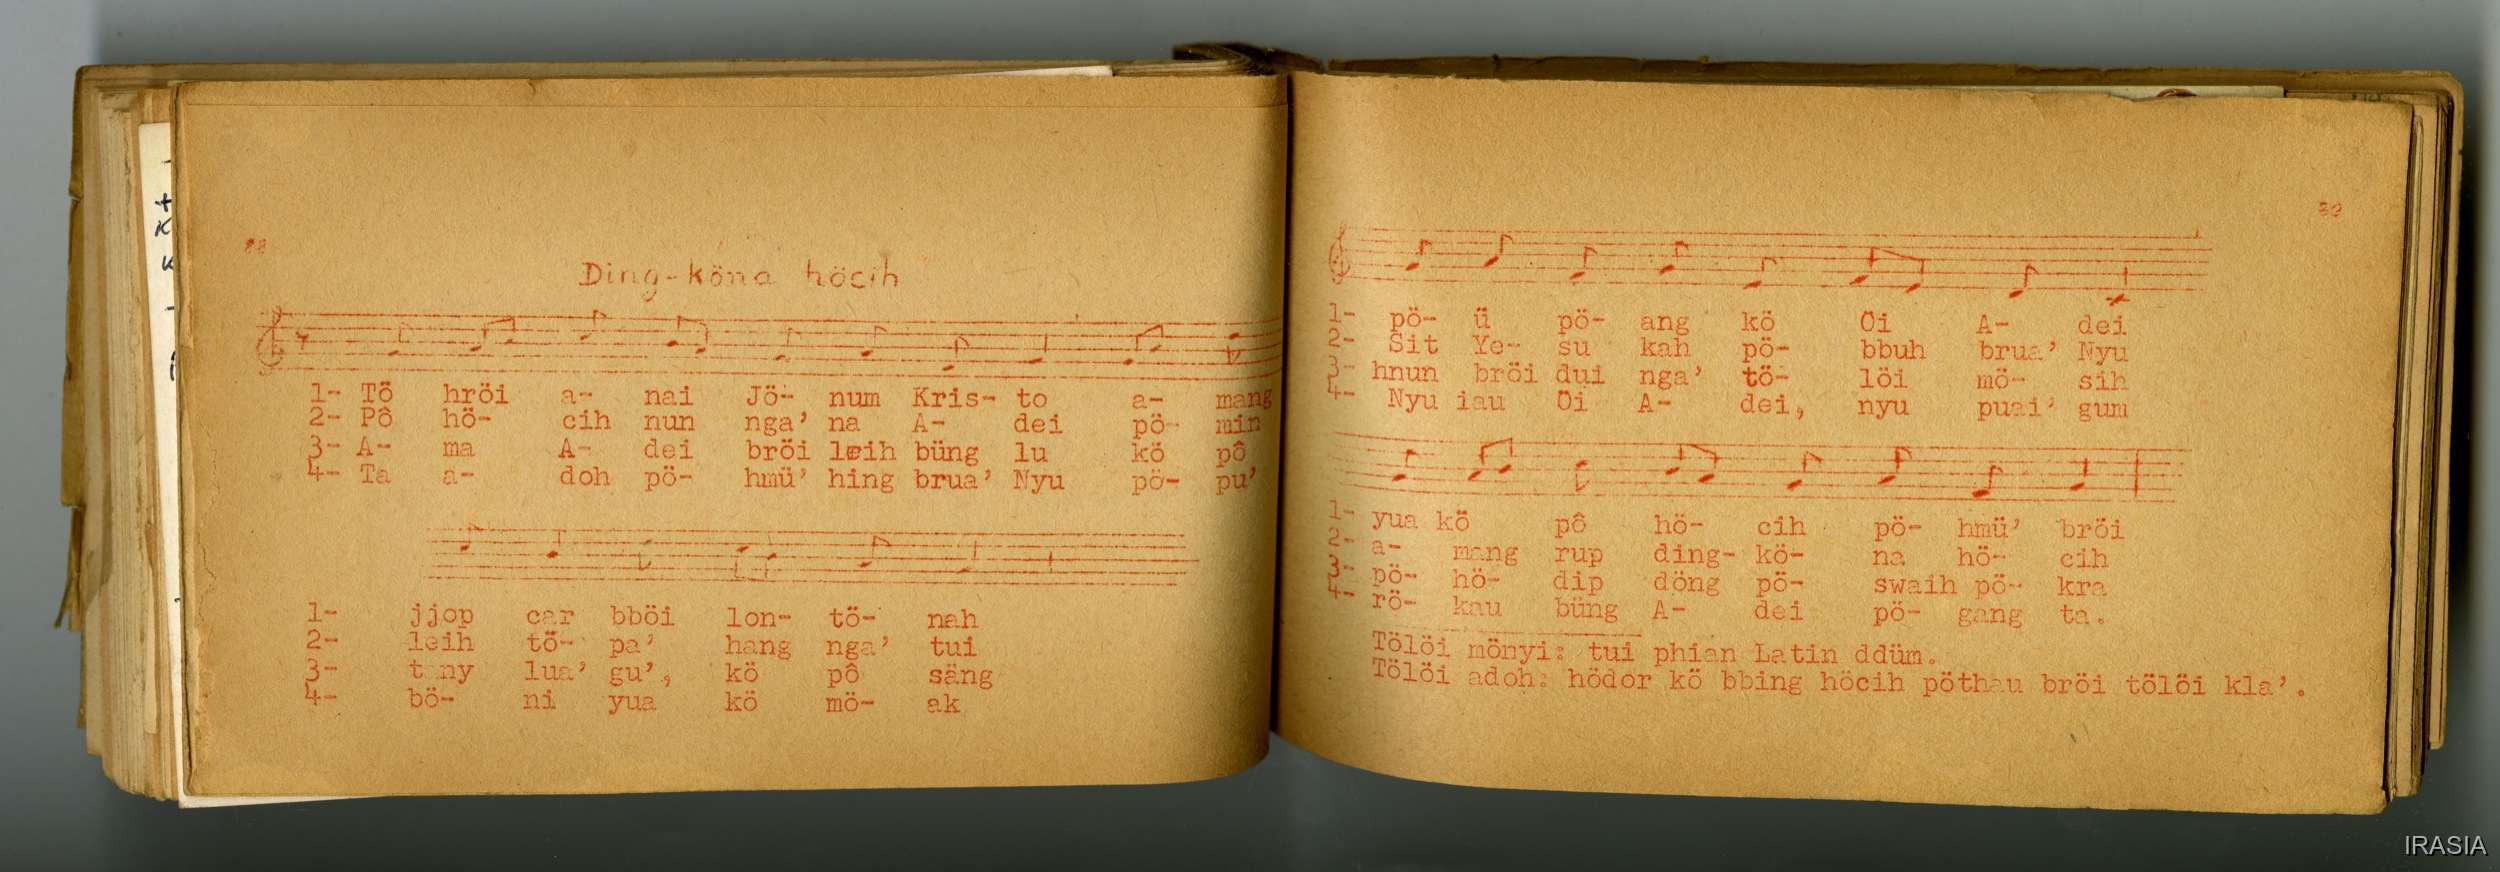 38
Ding-köna höcih
1- Tö hröi a- nai Jö- num Kris- to a- mang
2- Pô hö- cih nun nga' na A- dei pö- min
3- A- ma A- dei bröi leih büng lu kö pô
4- Ta a- doh pö- hmü' hing brua' Nyu pö- pu'
1- jjop car bböi lon- tö- nah
2- leih tö- pa' hang nga' tui
3- lua' gu', kö pô säng
4- bö- ni yua kö mö- ak
39
1- pö- ü pö- ang kö Öi A- dei
2- Sit Ye- su kah pö- bbuh brua' Nyu
3- hnun bröi dui nga' tö- löi mö- sih
4- Nyu iau Öi A- dei, nyu puai' gum
1- yua kö pô hö- cih pö- hmü' bröi
2- a- mang rup ding- kö- na hö- cih
3- pö- hö- dip döng pö- swaih pö- kra
4- rö- kau büng A- dei pö- gang ta.
Tölöi mönyi: tui phian Latin ddüm.
Tölöi adoh: hödor kö bbing höcih pöthau bröi tölöi kla'.
IRASIA